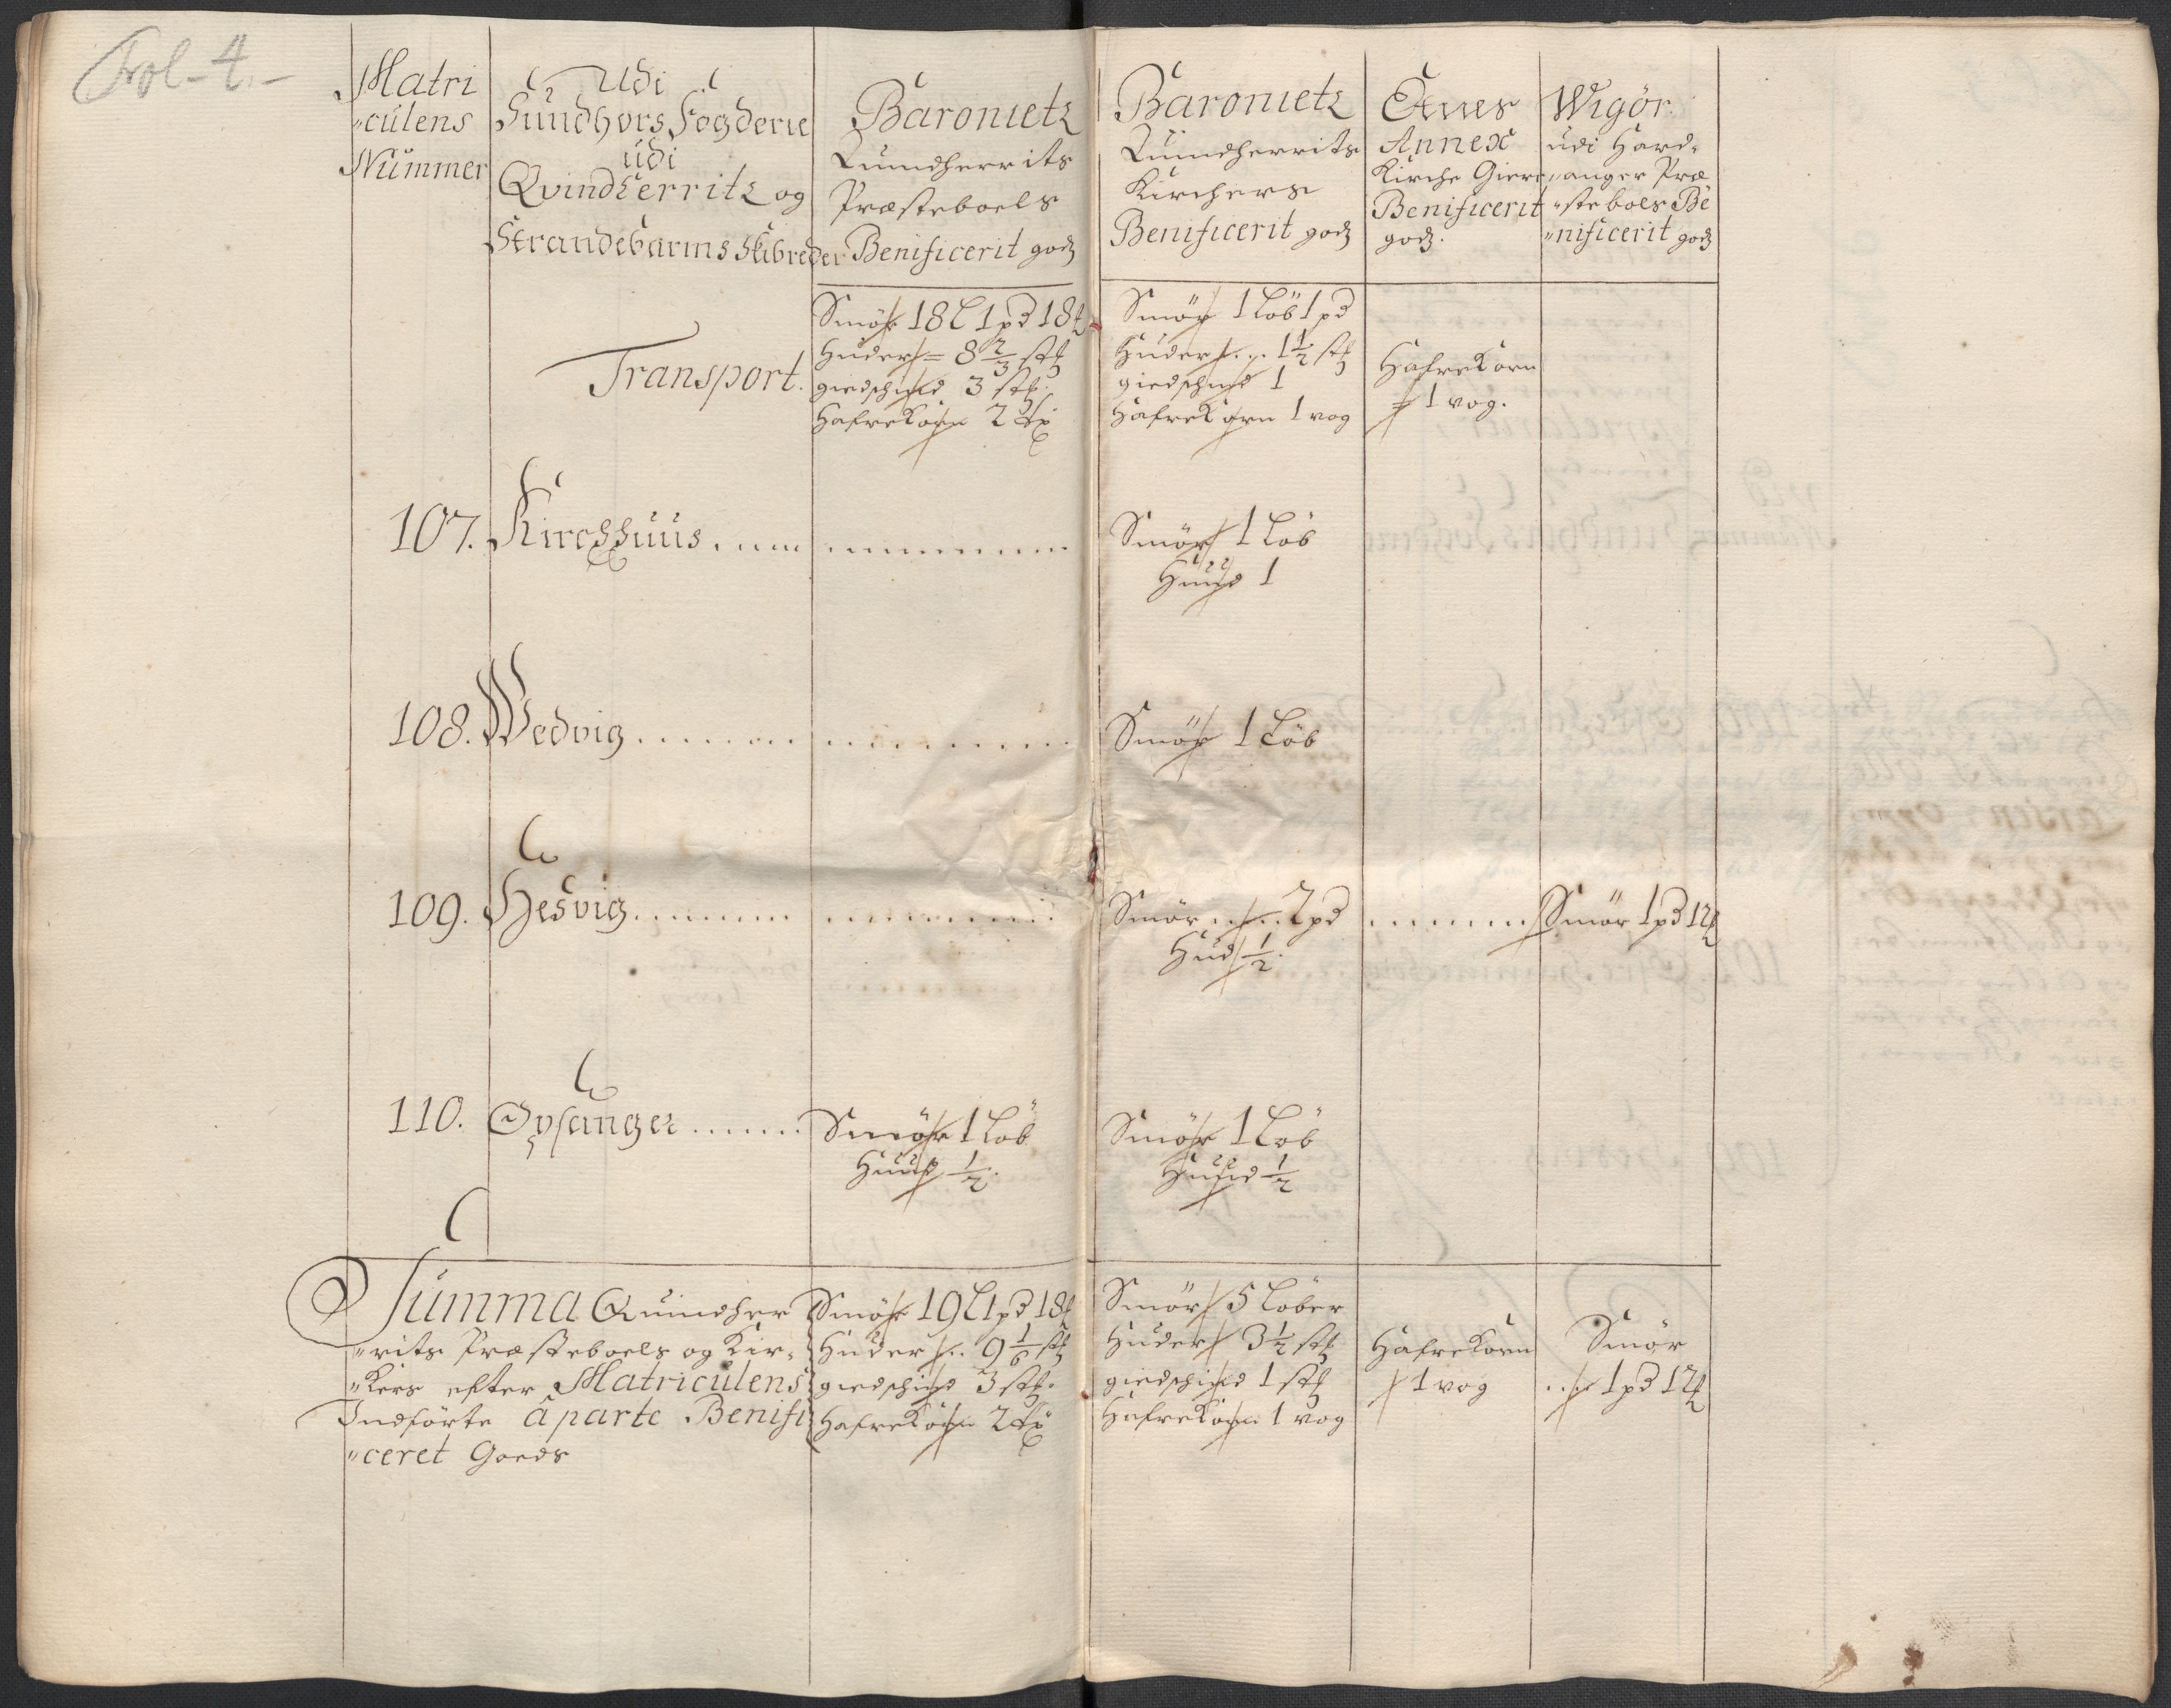 Fol-4.-
Matri
"culens
Nummer
Udi
Sundhors Fogderie
udi
Qvindherritz og
Strandebarms Skibreder
Baronietz
Quindherrits
Præsteboels
Benificerit godz
Baronietz
Quindherrits
Kirchers
Benificerit godz
Annex
Kirche Giers
Benificerit
godz.
Wigör
udi Hard-
"anger Præ
"steboels Be
"nificerit godz
Transport.
Smör 18 L 1 pd 18 ℔
Huder = 8 2/3 stk
giedschind 3 stk.
Hafrekorn 2
Smör 1 Löb 1 pd
Huder . . 1 1/2 stk
giedschind 1
Hafrekorn 1 vog
Hafrekorn
= 1 vog.
107. Kirchhuus
Smör 1 Löb
Huud 1
108. Wedvig
Smör 1 Löb
109. Hesvig
Smör . . . 2 pd
Hud 1/2.
Smör 1 pd 12 ℔
110. Opsanger
Smör 1 Löb
Huud 1/2.
Smör 1 Löb
Huud 1/2
Summa Quindher
"rits Præsteboels og Kir-
"kers efter Matriculens
Indförte â parte Benifi
"ceret Goeds
Smör 19 L 1 pd 18 ℔
Huder . . 9 1/6 stk
giedschind 3 stk.
Hafrekorn 2
Smör 5 Löber
Huder 3 1/2 stk
giedschind 1 stk
Hafrekorn 1 vog
Hafrekorn
1 vog
Smör
. . . 1 pd 12 ℔